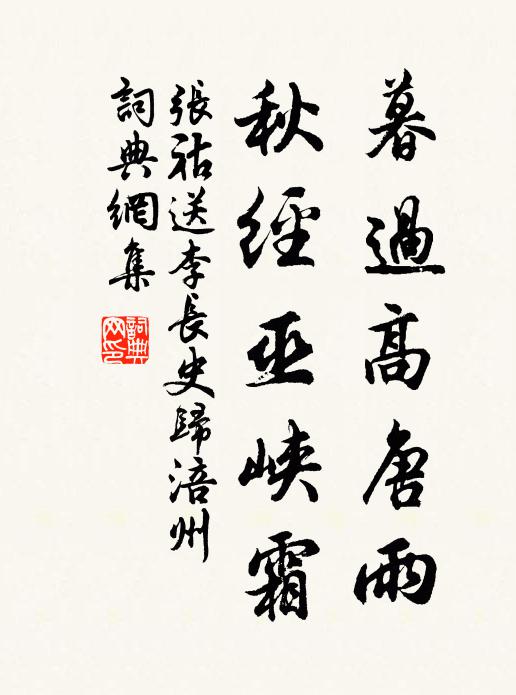 暮過高唐雨
秋經巫峽霜
張祜送李長史歸涪州
詞典網集
詞典
网印